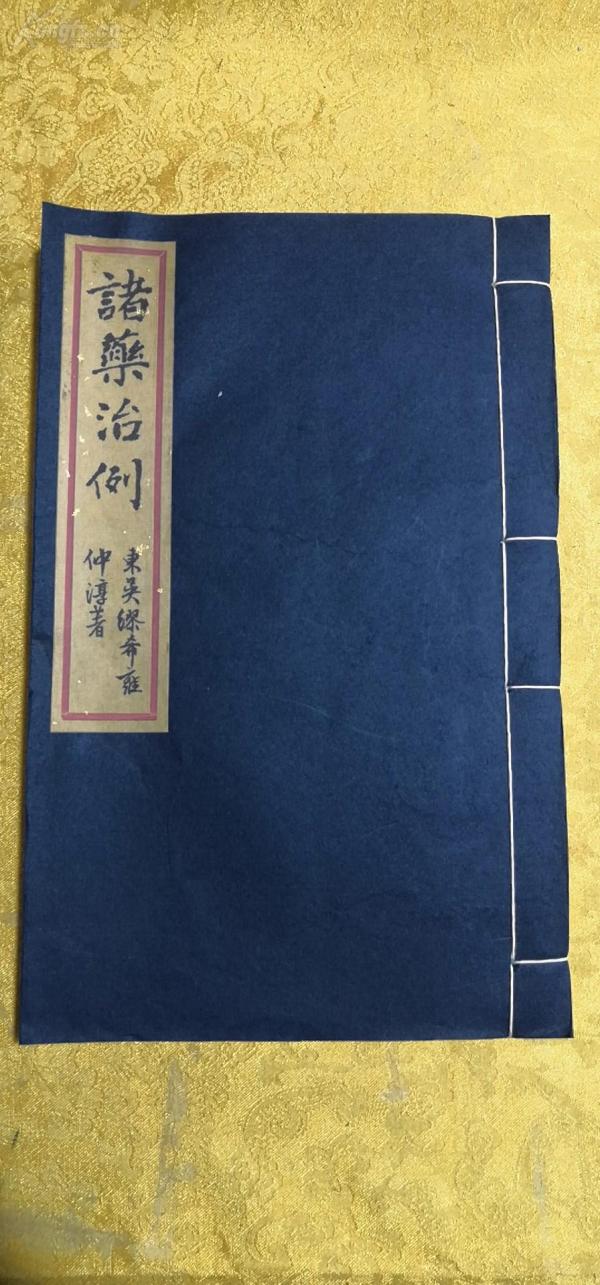 諸藥治例
東吳繆希雍
仲淳著